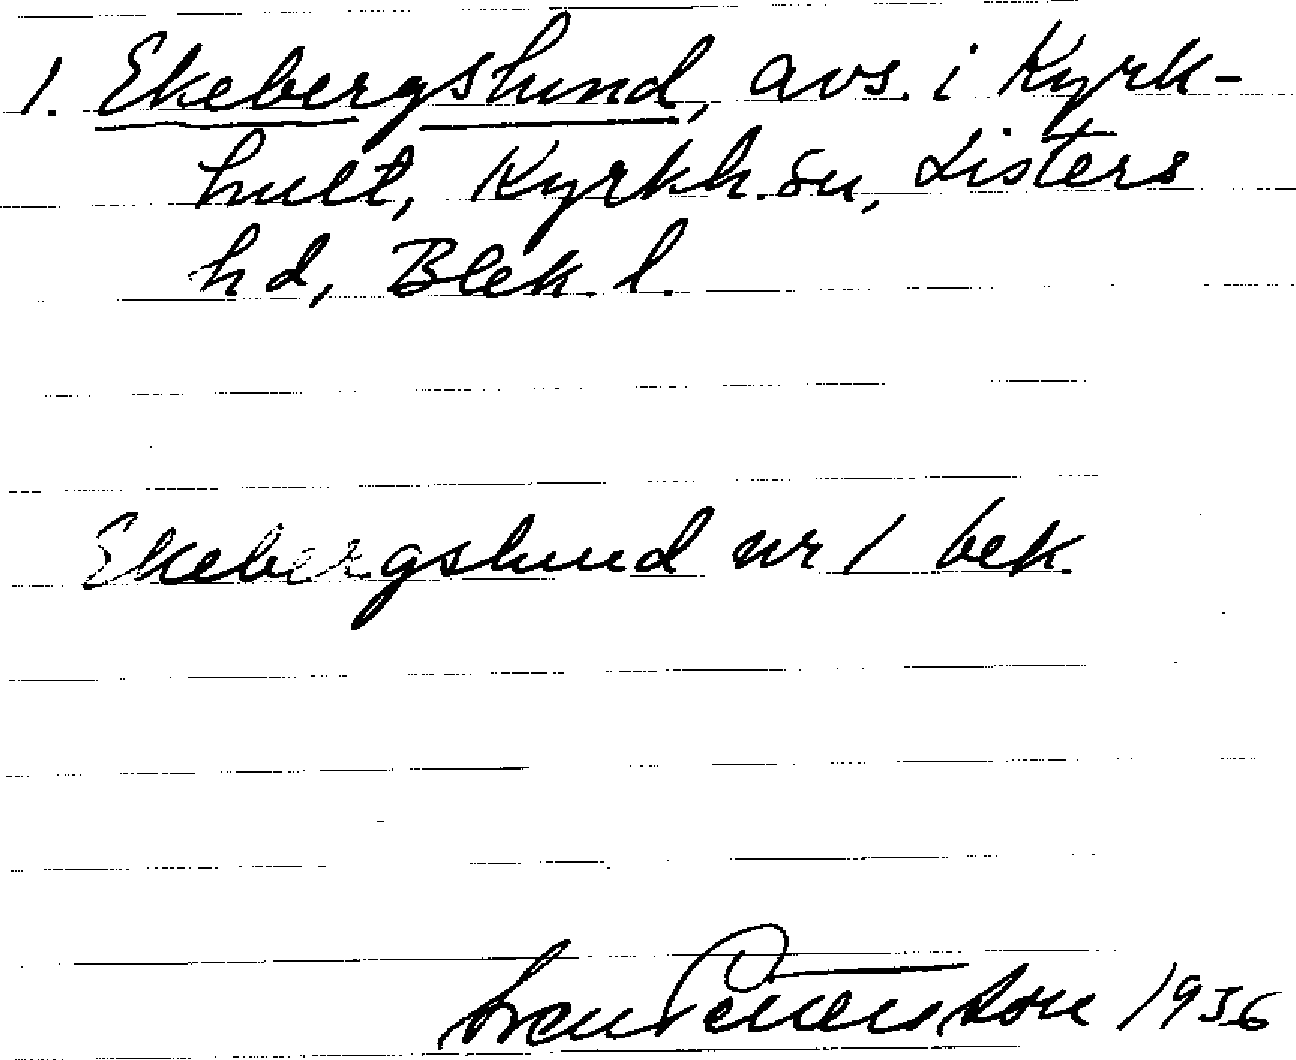 1. Ekebergslund, avs. i Kyrk-
hult, Kyrkh. sn, Listers
hd, Blek. l.
Ekebergslund nr 1 bek.
Sven Pettersson 1936